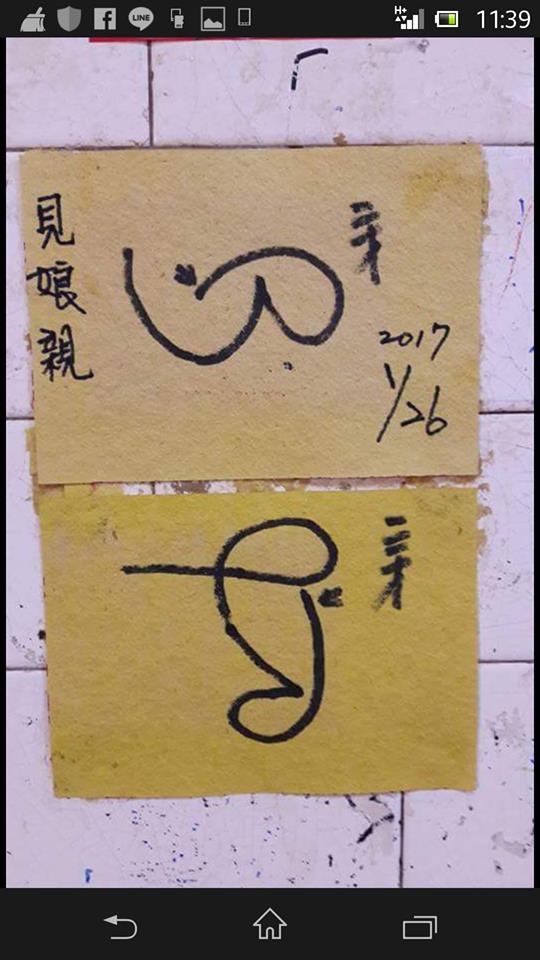 H+ 11:39
LINE
見娘親
2017
1/26